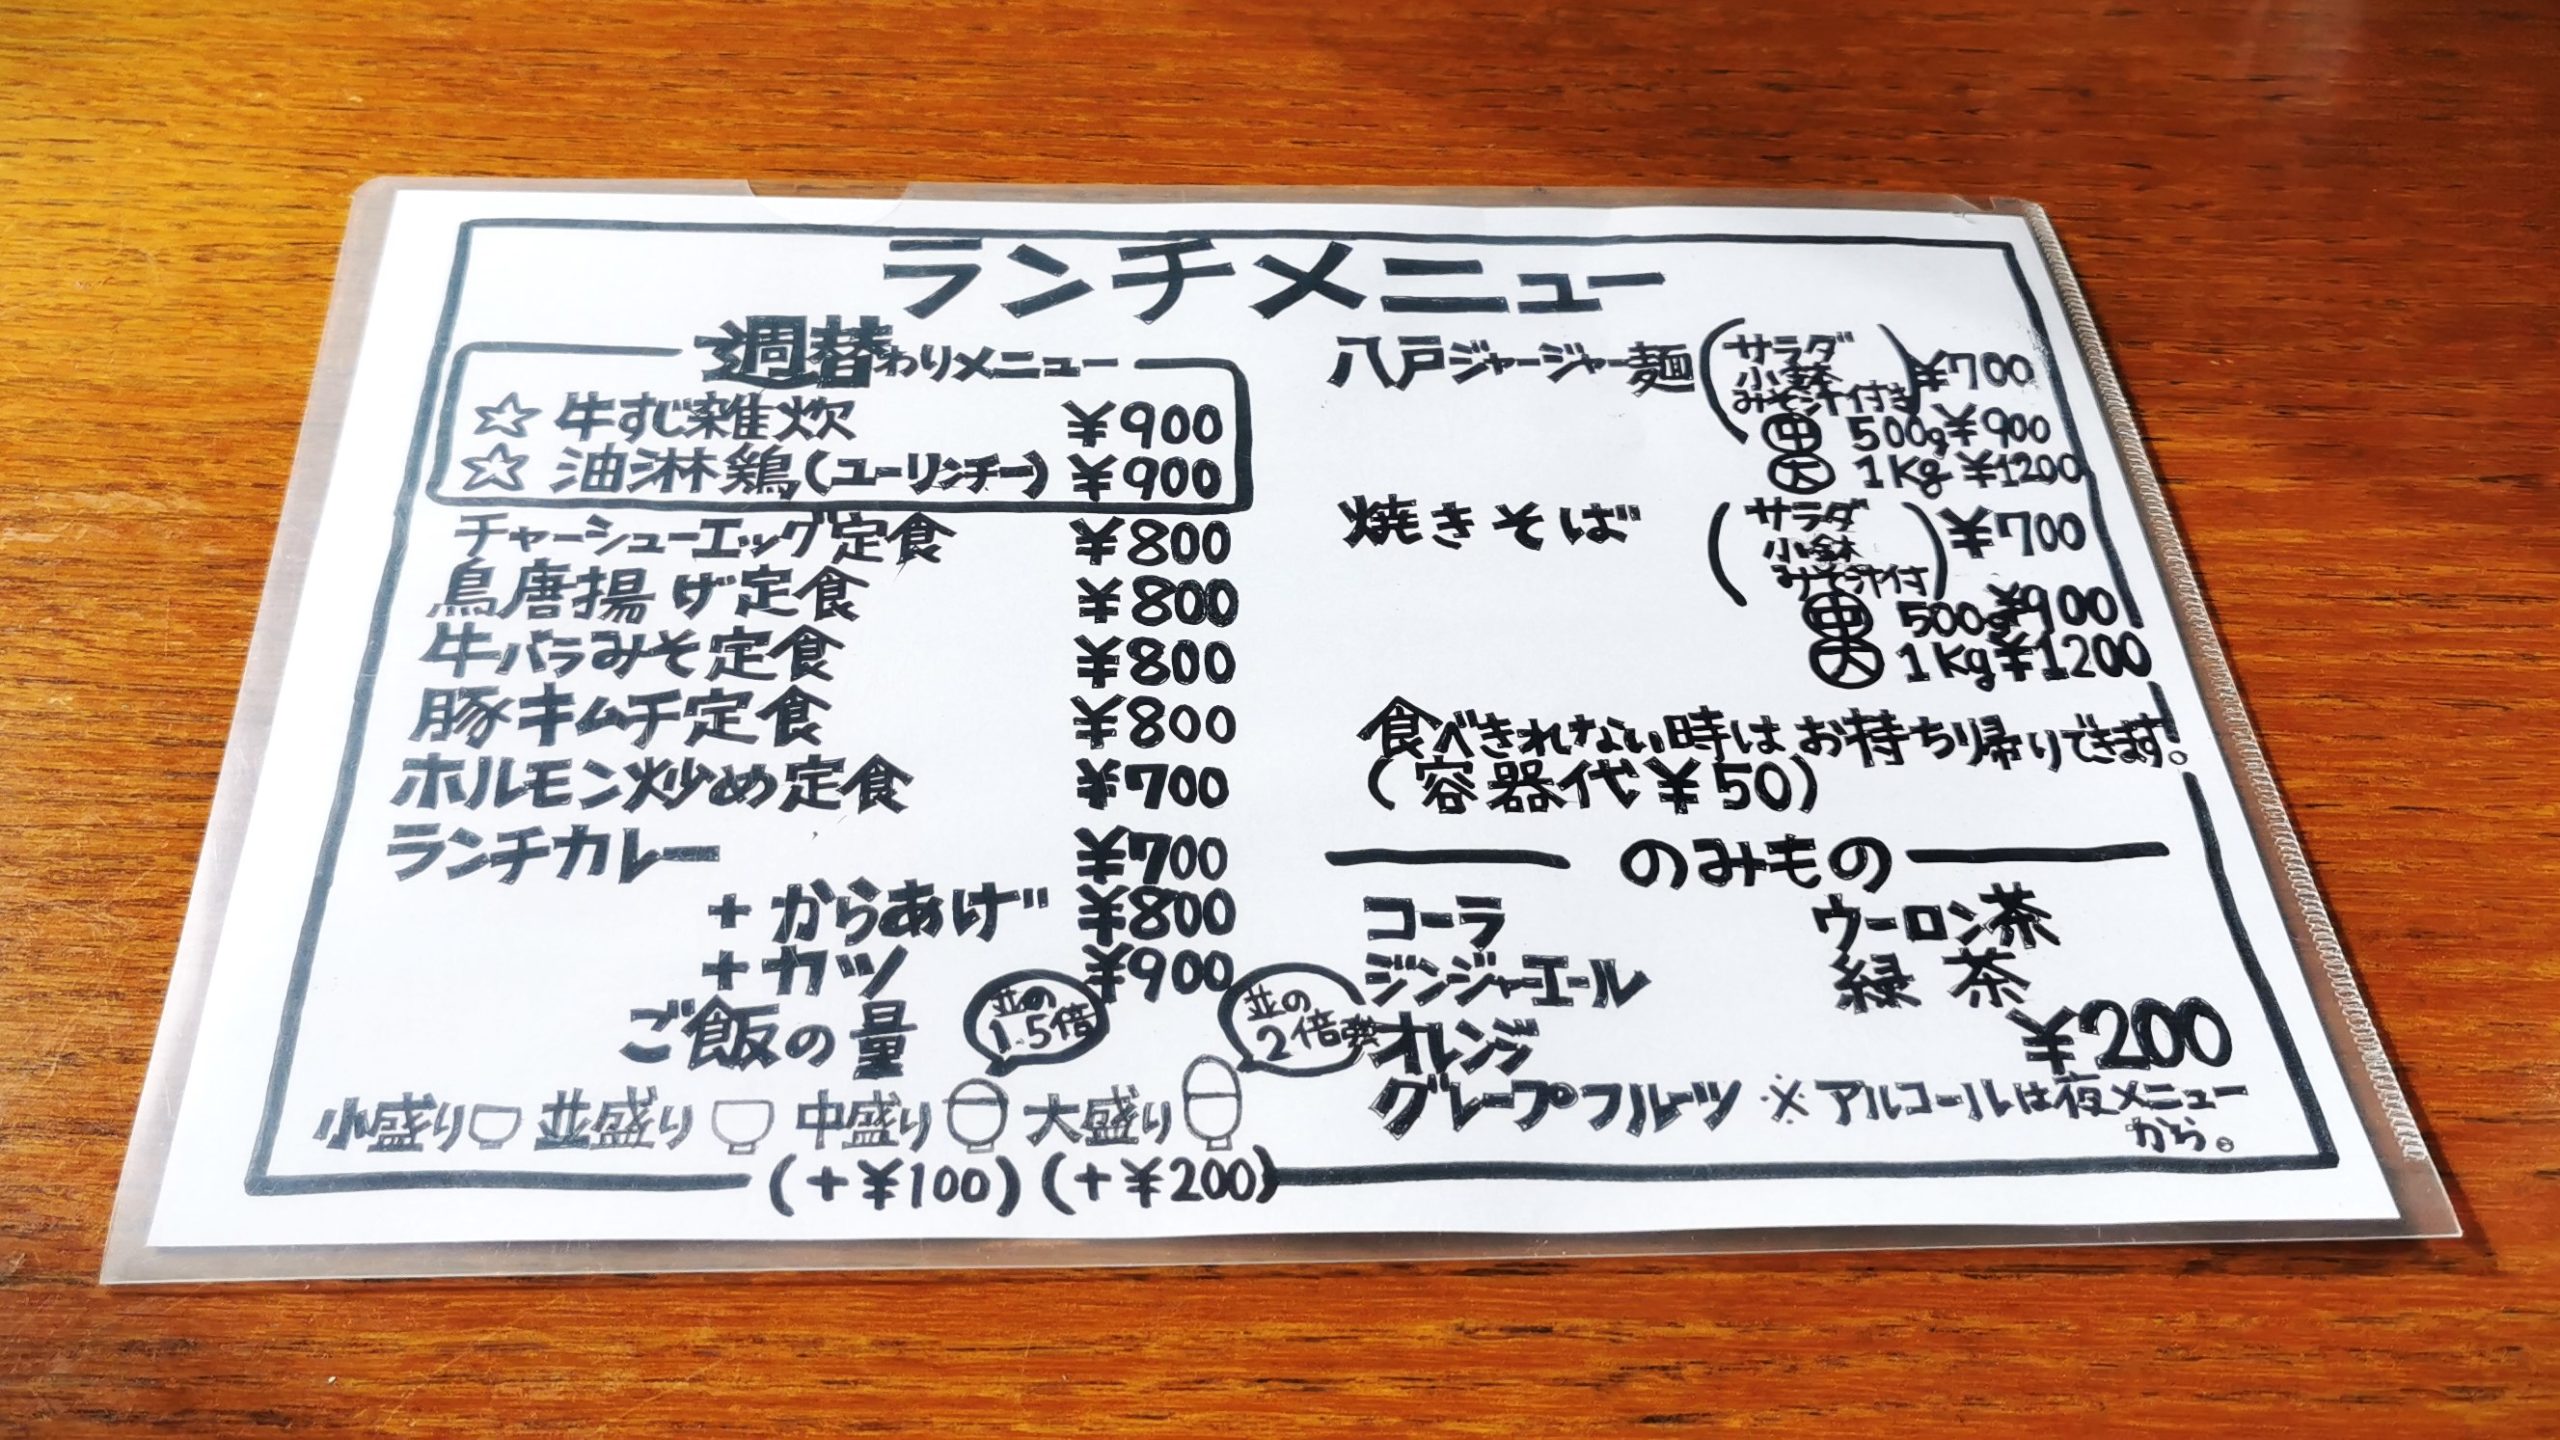 ランチメニュー
週替わりメニュー
☆ 牛すじ雑炊 ¥900
☆ 油淋鶏(ユーリンチー) ¥900
チャーシューエッグ定食 ¥800
鳥唐揚げ定食 ¥800
牛バラみそ定食 ¥800
豚キムチ定食 ¥800
ホルモン炒め定食 ¥700
ランチカレー ¥700
+からあげ ¥800
+カツ ¥900
ご飯の量
並の
1.5倍
並の
2倍
小盛り 並盛り 中盛り 大盛り
(+¥100) (+¥200)
八戸ジャージャー麺 (サラダ
小鉢
みそ汁付き) ¥700
㊥ 500g ¥900
大 1Kg ¥1200
焼きそば (サラダ
小鉢
みそ汁付) ¥700
㊥ 500g ¥900
大 1Kg ¥1200
食べきれない時はお持ち帰りできます。
(容器代¥50)
のみもの
コーラ ウーロン茶
ジンジャーエール 緑茶
オレンジ ¥200
グレープフルーツ ※アルコールは夜メニュー
から。